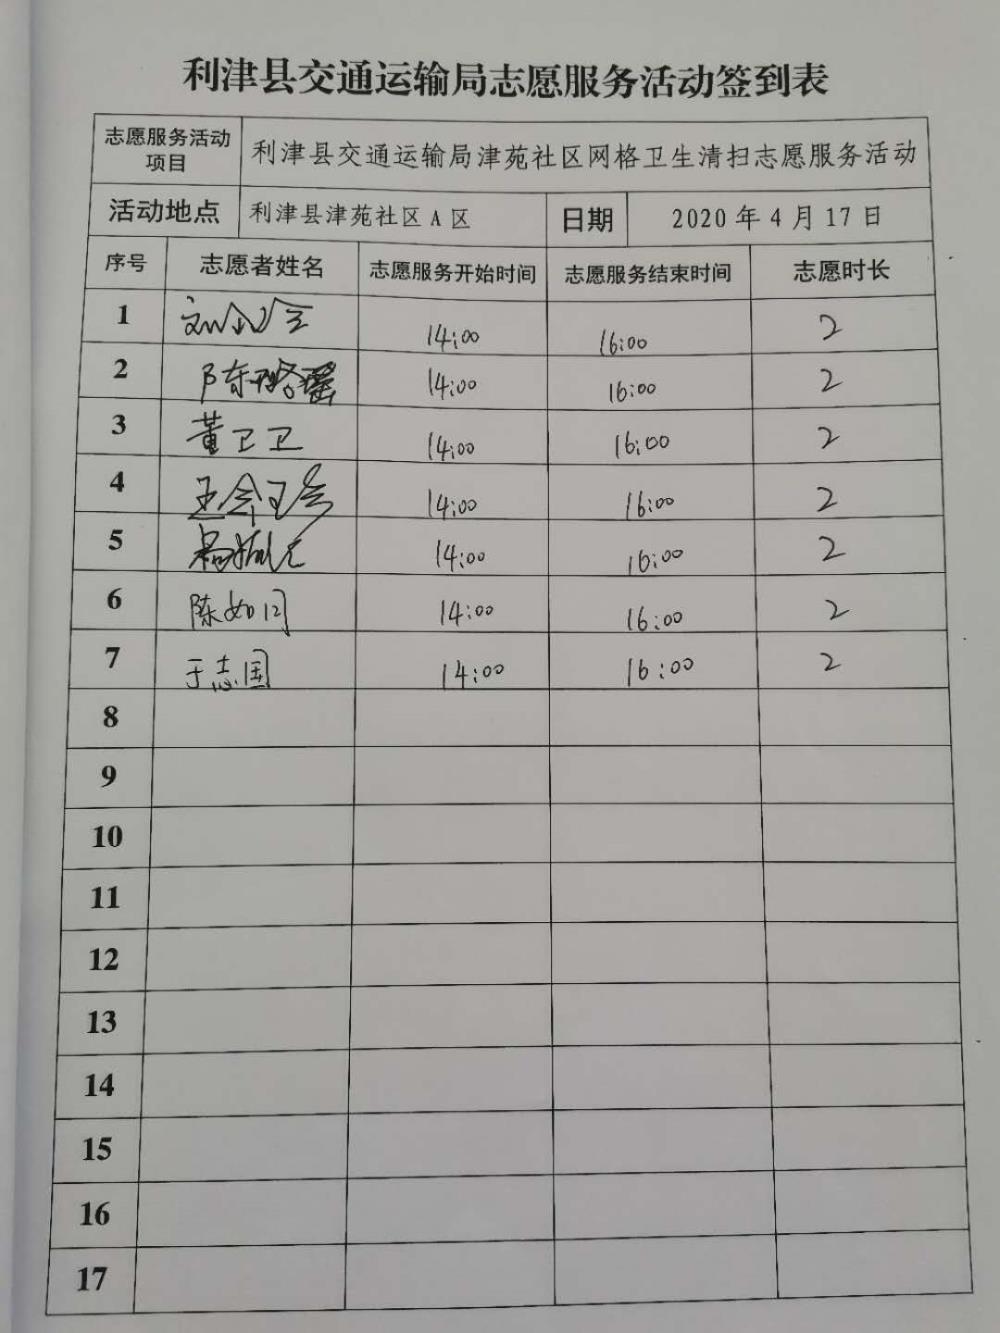 利津县交通运输局志愿服务活动签到表
志愿服务活动项目 利津县交通运输局津苑社区网格卫生清扫志愿服务活动
活动地点 利津县津苑社区A区 日期 2020年4月17日
序号 志愿者姓名 志愿服务开始时间 志愿服务结束时间 志愿时长
1 14:00 16:00 2
2 陈 14:00 16:00 2
3 董卫卫 14:00 16:00 2
4 14:00 16:00 2
5 14:00 16:00 2
6 陈如 14:00 16:00 2
7 于志国 14:00 16:00 2
8
9
10
11
12
13
14
15
16
17